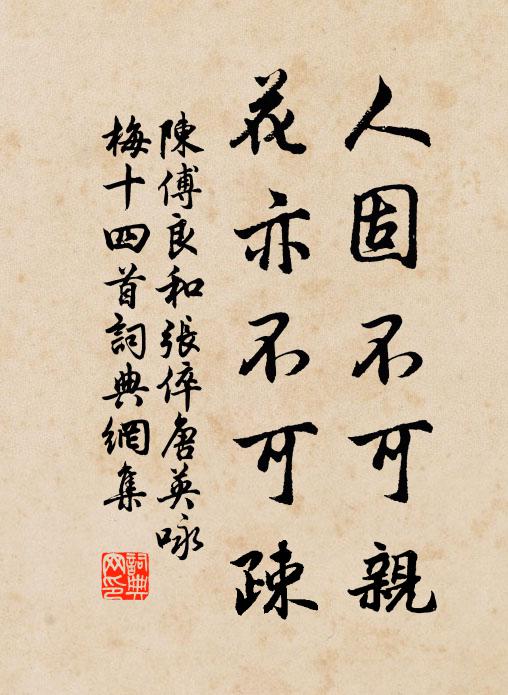 人固不可親
花亦不可疎
陳傅良和張倅唐英咏
梅十四首詞典網集
詞典
网印